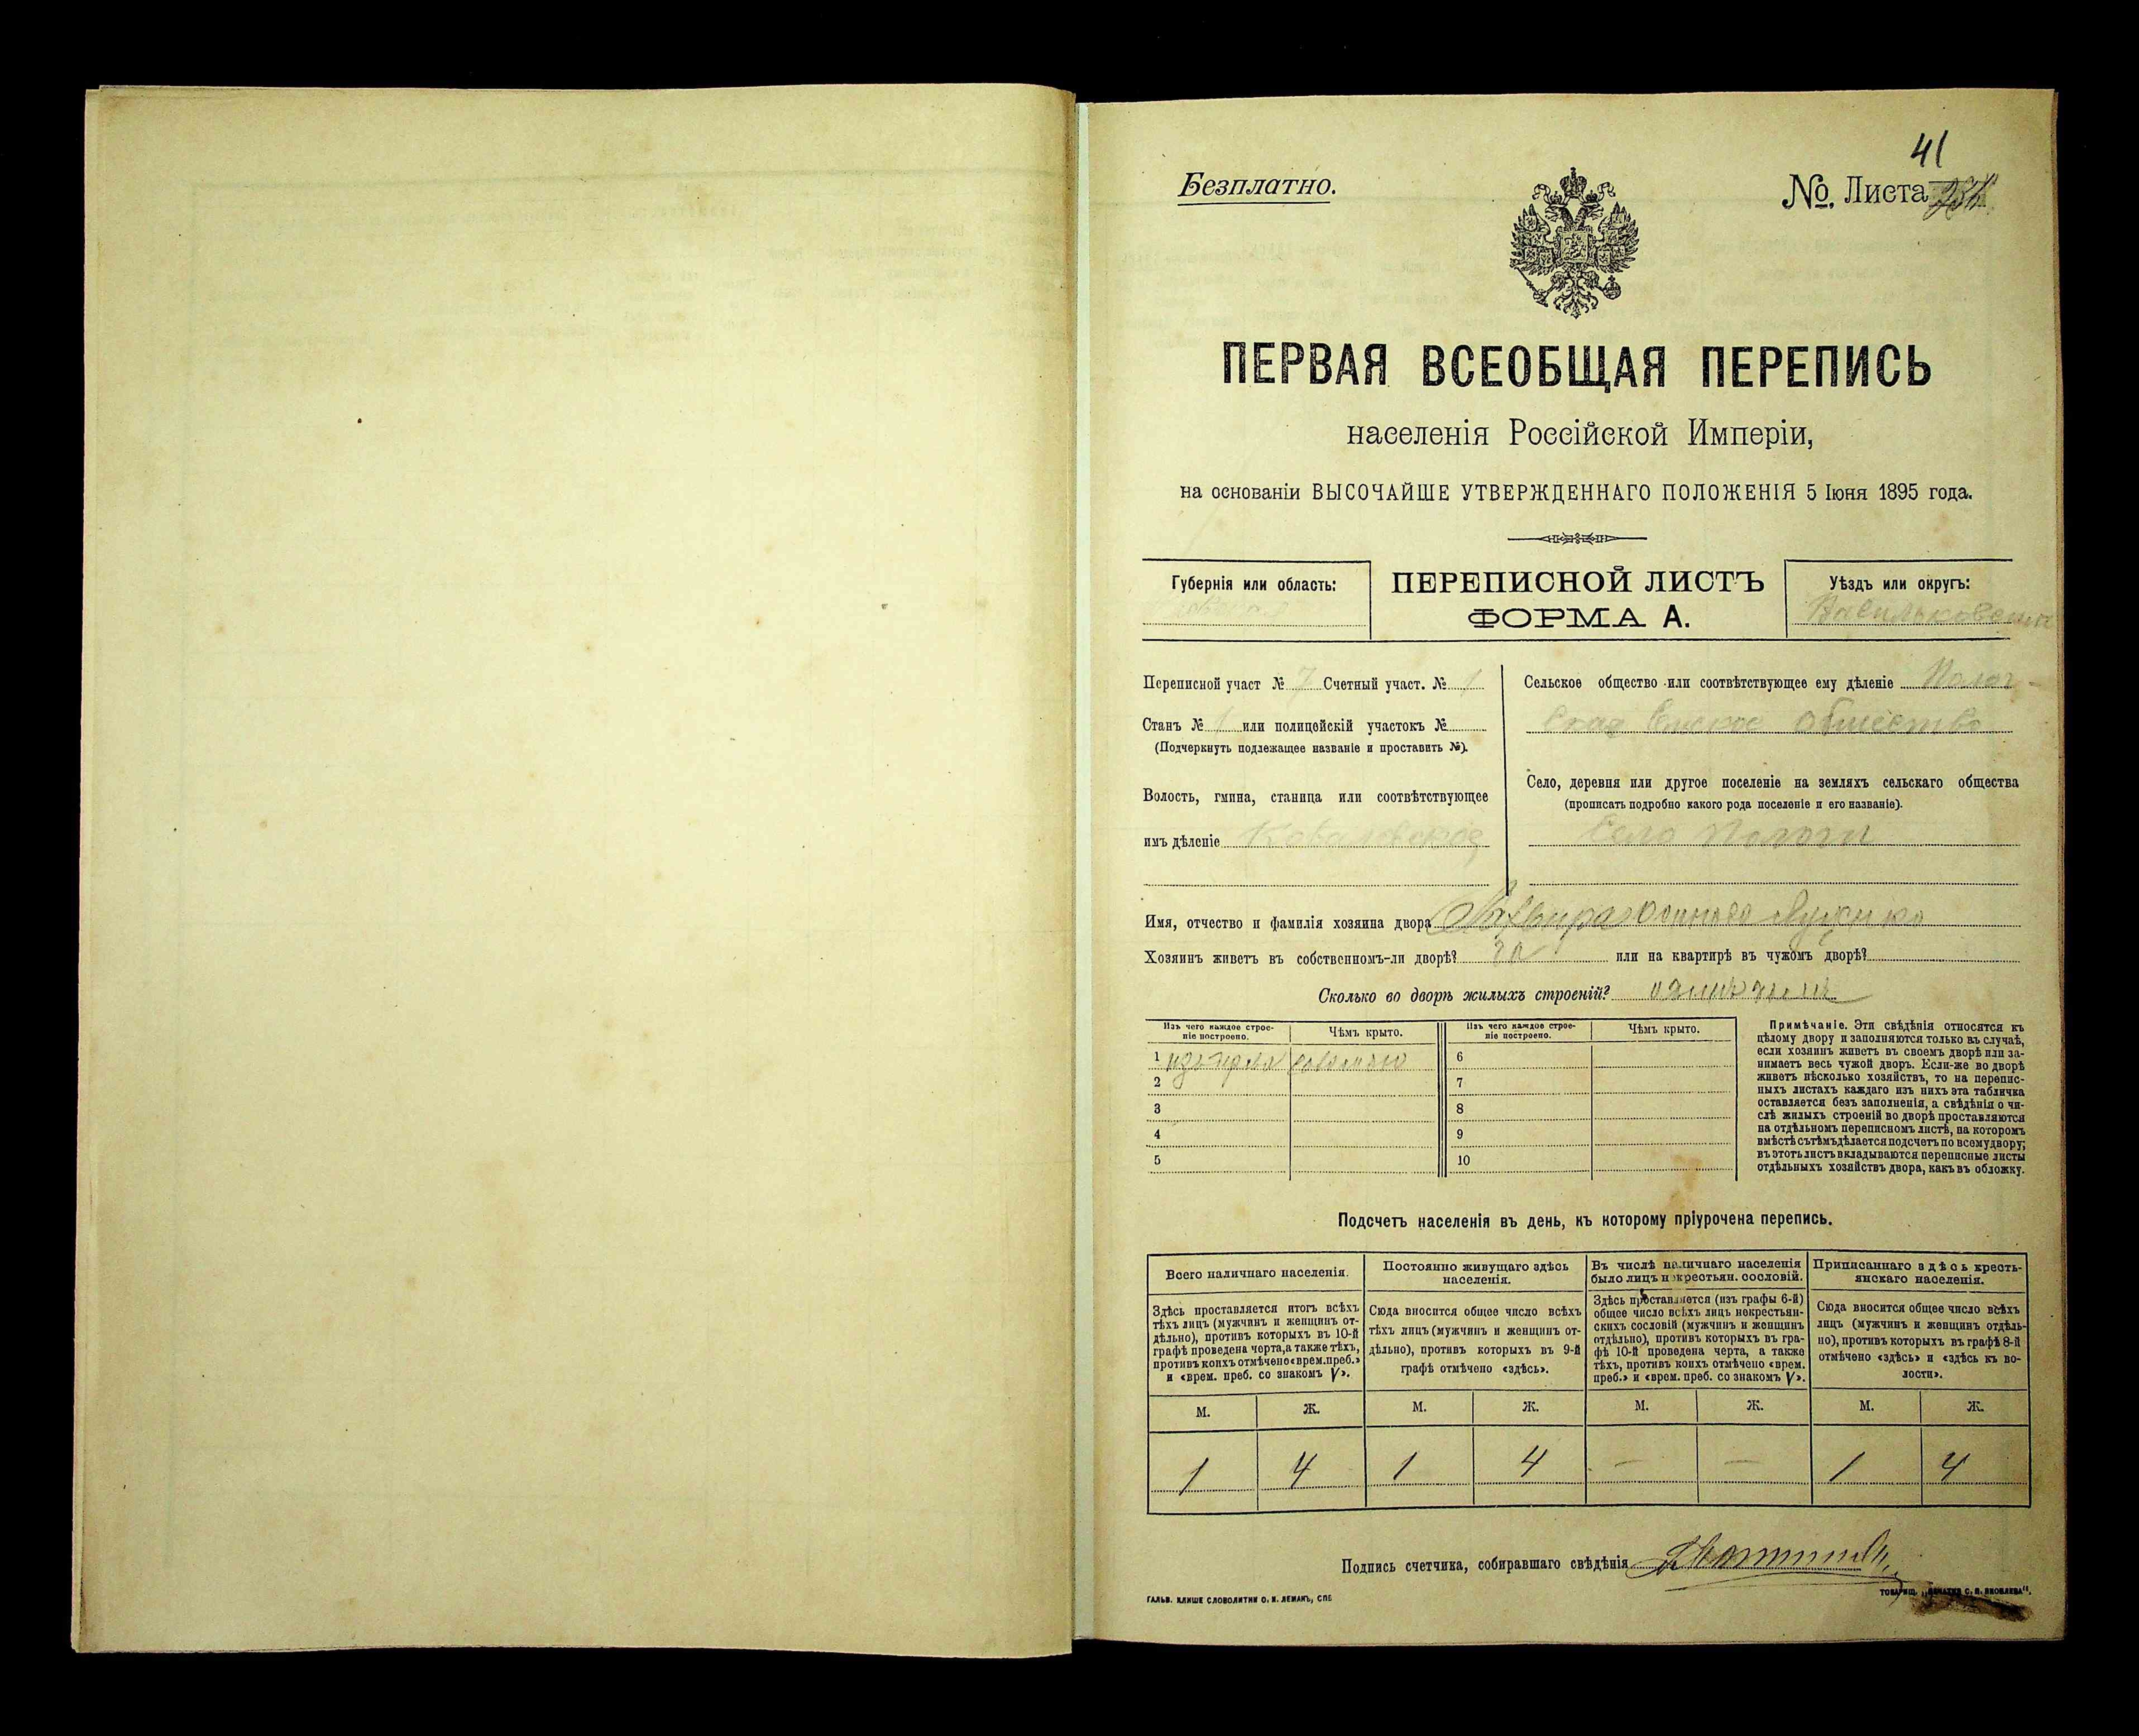 41
Безплатно.
№. Листа
ПЕРВАЯ ВСЕОБЩАЯ ПЕРЕПИСЬ
населенія Россійской Имперіи,
на основаніи ВЫСОЧАЙШЕ УТВЕРЖДЕННАГО ПОЛОЖЕНІЯ 5 Іюня 1895 года.
Губернія или область:
ПЕРЕПИСНОЙ ЛИСТЪ
ФОРМА А.
Уѣздъ или округъ:
Васильковскій
Переписной участ № 7 Счетный участ. № 1
Станъ № 1 или полицейскій участокъ №
(Подчеркнуть подлежащее названіе и проставить №).
Волость, гмина, станица или соотвѣтствующее
имъ дѣленіе Ковалевская
Сельское общество или соотвѣтствующее ему дѣленіе Полог-
общество
Село, деревня или другое поселеніе на земляхъ сельскаго общества
(прописать подробно какого рода поселеніе и его названіе).
Село Пологи
Имя, отчество и фамилія хозяина двора
Хозяинъ живетъ въ собственномъ-ли дворѣ? или на квартирѣ въ чужомъ дворѣ?
Сколько во дворѣ жилыхъ строеній?
Изъ чего каждое строе-
ніе построено.
Чѣмъ крыто.
Изъ чего каждое строе-
ніе построено.
Чѣмъ крыто.
1 соломою 6
2 7
3 8
4 9
5 10
Примѣчаніе. Эти свѣдѣнія относятся къ
цѣлому двору и заполняются только въ случаѣ,
если хозяинъ живетъ въ своемъ дворѣ или за-
нимаетъ весь чужой дворъ. Если-же во дворѣ
живетъ нѣсколько хозяйствъ, то на перепис-
ныхъ листахъ каждаго изъ нихъ эта табличка
оставляется безъ заполненія, а свѣдѣнія о чи-
слѣ жилыхъ строеній во дворѣ проставляются
на отдѣльномъ переписномъ листѣ, на которомъ
вмѣстѣ съ тѣмъ дѣлается подсчетъ по всему двору;
въ этотъ листъ вкладываются переписные листы
отдѣльныхъ хозяйствъ двора, какъ въ обложку.
Подсчетъ населенія въ день, къ которому пріурочена перепись.
Всего наличнаго населенія.
Здѣсь проставляется итогъ всѣхъ
тѣхъ лицъ (мужчинъ и женщинъ от-
дѣльно), противъ которыхъ въ 10-й
графѣ проведена черта, а также тѣхъ,
противъ коихъ отмѣчено «врем. преб.»
и «врем. преб. со знакомъ V».
Постоянно живущаго здѣсь
населенія.
Сюда вносится общее число всѣхъ
тѣхъ лицъ (мужчинъ и женщинъ от-
дѣльно), противъ которыхъ въ 9-й
графѣ отмѣчено «здѣсь».
Въ числѣ наличнаго населенія
было лицъ некрестьян. сословій.
Здѣсь проставляется (изъ графы 6-й)
общее число всѣхъ лицъ некрестьян-
скихъ сословій (мужчинъ и женщинъ
отдѣльно), противъ которыхъ въ гра-
фѣ 10-й проведена черта, а также
тѣхъ, противъ коихъ отмѣчено «врем.
преб.» и «врем. преб. со знакомъ V».
Приписаннаго здѣсь кресть-
янскаго населенія.
Сюда вносится общее число всѣхъ
лицъ (мужчинъ и женщинъ отдѣль-
но), противъ которыхъ въ графѣ 8-й
отмѣчено «здѣсь» и «здѣсь къ во-
лости».
М. Ж. М. Ж. М. Ж. М. Ж.
1 4 1 4 — — 1 4
Подпись счетчика, собиравшаго свѣдѣнія
ГАЛЬВ. КЛИШЕ СЛОВОЛИТНИ О. И. ЛЕМАНЪ, СПБ
ТОВАРИЩ. „ПЕЧАТНЯ С. П. ЯКОВЛЕВА“.